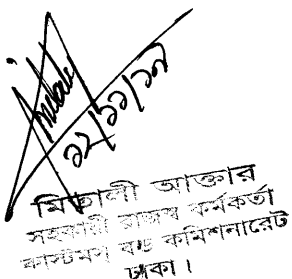 ১২/১১/১৭
মিতালী আক্তার
সহকারী রাজস্ব কর্মকর্তা
কাস্টমস বন্ড কমিশনারেট
ঢাকা।